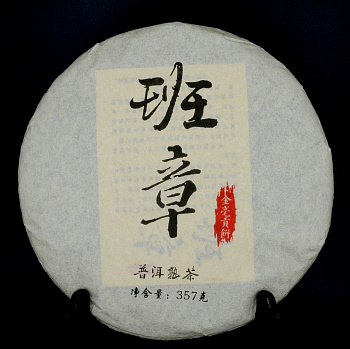 班章
金毫貢餅
普洱熟茶
净含量：357克